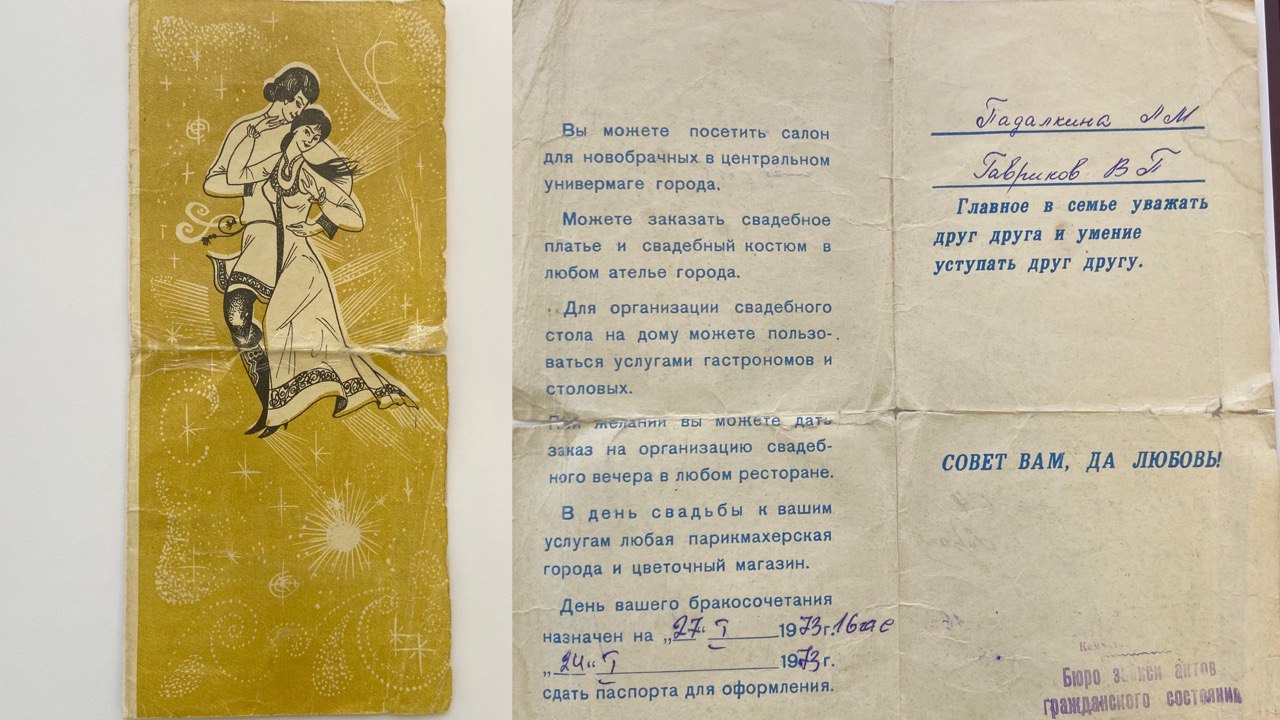 Вы можете посетить салон
для новобрачных в центральном
универмаге города.
Можете заказать свадебное
платье и свадебный костюм в
любом ателье города.
Для организации свадебного
стола на дому можете пользо-
ваться услугами гастрономов и
столовых.
При желании вы можете дать
заказ на организацию свадеб-
ного вечера в любом ресторане.
В день свадьбы к вашим
услугам любая парикмахерская
города и цветочный магазин.
День вашего бракосочетания
назначен на „27“ I 1973г. 16 час
„24“ I 1973г.
сдать паспорта для оформления.
Падалкина ЛМ
Гавриков ВП
Главное в семье уважать
друг друга и умение
уступать друг другу.
СОВЕТ ВАМ, ДА ЛЮБОВЬ!
Бюро записи актов
гражданского состояния